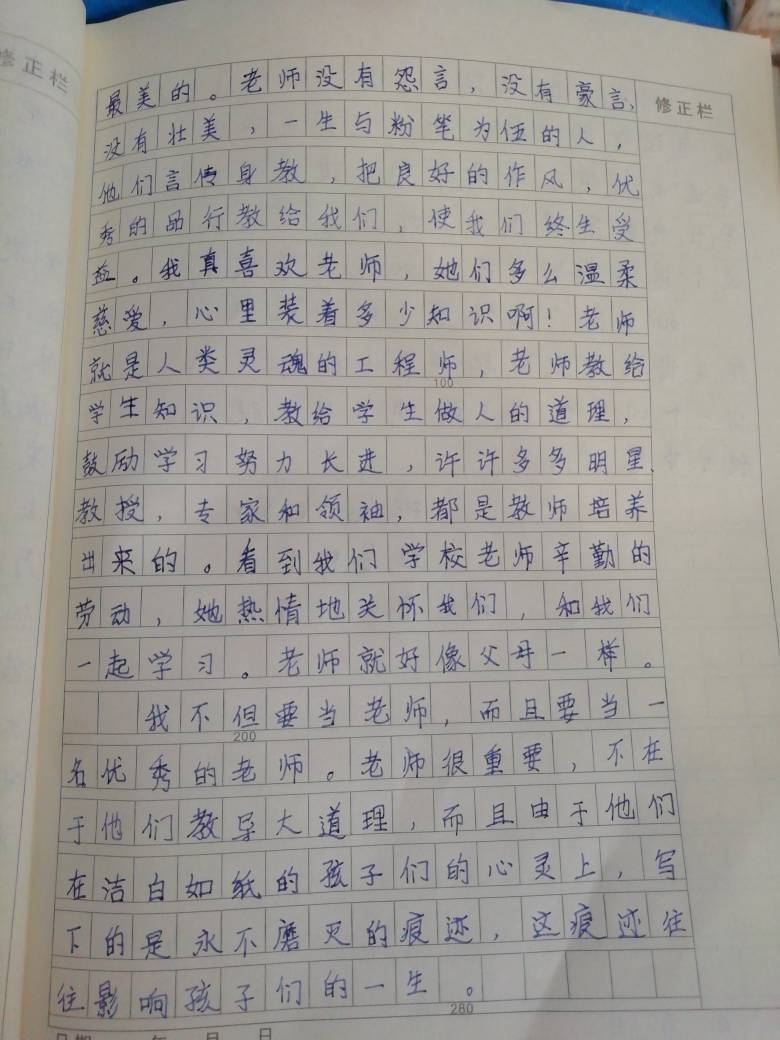 修正栏
修正栏
最美的。老师没有怨言，没有豪言，
没有壮美，一生与粉笔为伍的人，
他们言传身教，把良好的作风，优
秀的品行教给我们，使我们终生受
益。我真喜欢老师，她们多么温柔
慈爱，心里装着多少知识啊！老师
就是人类灵魂的工程师，老师教给
100
学生知识，教给学生做人的道理，
鼓励学习努力长进，许许多多明星、
教授，专家和领袖，都是教师培养
出来的。看到我们学校老师辛勤的
劳动，她热情地关怀我们，和我们
一起学习。老师就好像父母一样。
我不但要当老师，而且要当一
200
名优秀的老师。老师很重要，不在
于他们教导大道理，而且由于他们
在洁白如纸的孩子们的心灵上，写
下的是永不磨灭的痕迹，这痕迹往
往影响孩子们的一生。
280
日期 年 月 日